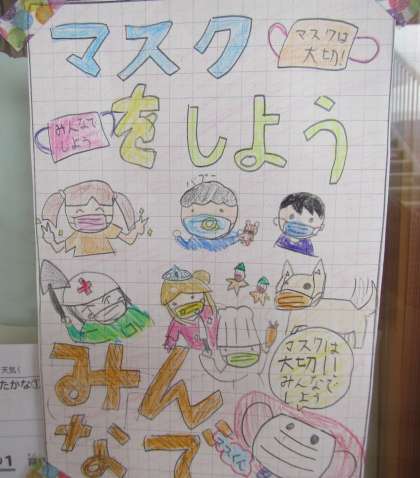 マスク
マスクは
大切!
みんなで
しよう
をしよう
バブー
マスクは
大切!!
みんなで
しよう
みん
なで
ママくん
天気く
たかな①